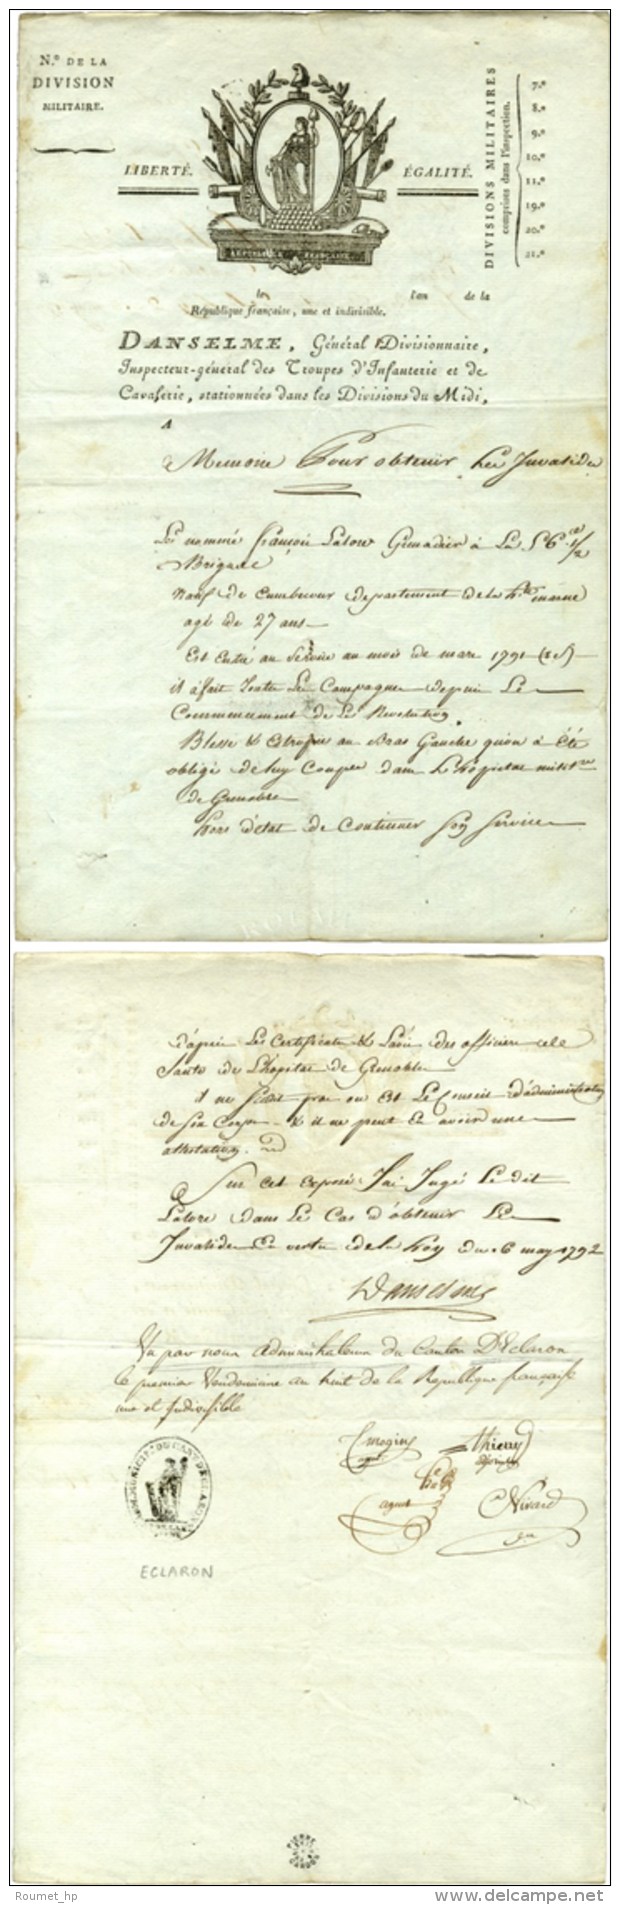 N.º DE LA
DIVISION
MILITAIRE.
LIBERTÉ.
ÉGALITÉ.
RÉPUBLIQUE FRANÇAISE
DIVISIONS MILITAIRES
comprises dans l'inspection.
7.e
8.e
9.e
10.e
11.e
19.e
20.e
21.e
le l'an de la
République française, une et indivisible.
DANSELME, Général Divisionnaire,
Inspecteur-général des Troupes d'Infanterie et de
Cavalerie, stationnées dans les Divisions du Midi,
A
Memoire Pour obtenir Les Invalides
Le nommé françois Latore Grenadier à La 56e 1/2
Brigade
natif de Cumbecour departement de la hte marne
agé de 27 ans
Est Entré au Service au mois de mars 1791 (v.s)
il à fait toutes Les Campagnes depuis Le
Commencement de La Revolution
Blesse & Estropie au Bras Gauche qu'on à Été
obligé de luy Couper dans L'hopital militre
de Grenoble
hors d'etat de Continuer Son Service
d'après Les Certificats & des officiers de
Santé de L'hopital de Grenoble
il ne scait pas ou Est Le Conseil d'administration
de Son Corps & il ne peut En avoir une
attestation.
Sur cet exposé J'ai Jugé Le dit
Latore dans Le Cas d'obtenir Les
Invalides En vertu de la Loy du 6 may 1792
Danselme
Vu par nous administrateurs du Canton D'Eclaron
le premier Vendemiaire an huit de la Republique française
une et Indivisible
thieury
agent
Nivard
ECLARON
Roumet_hp
www.delcampe.net